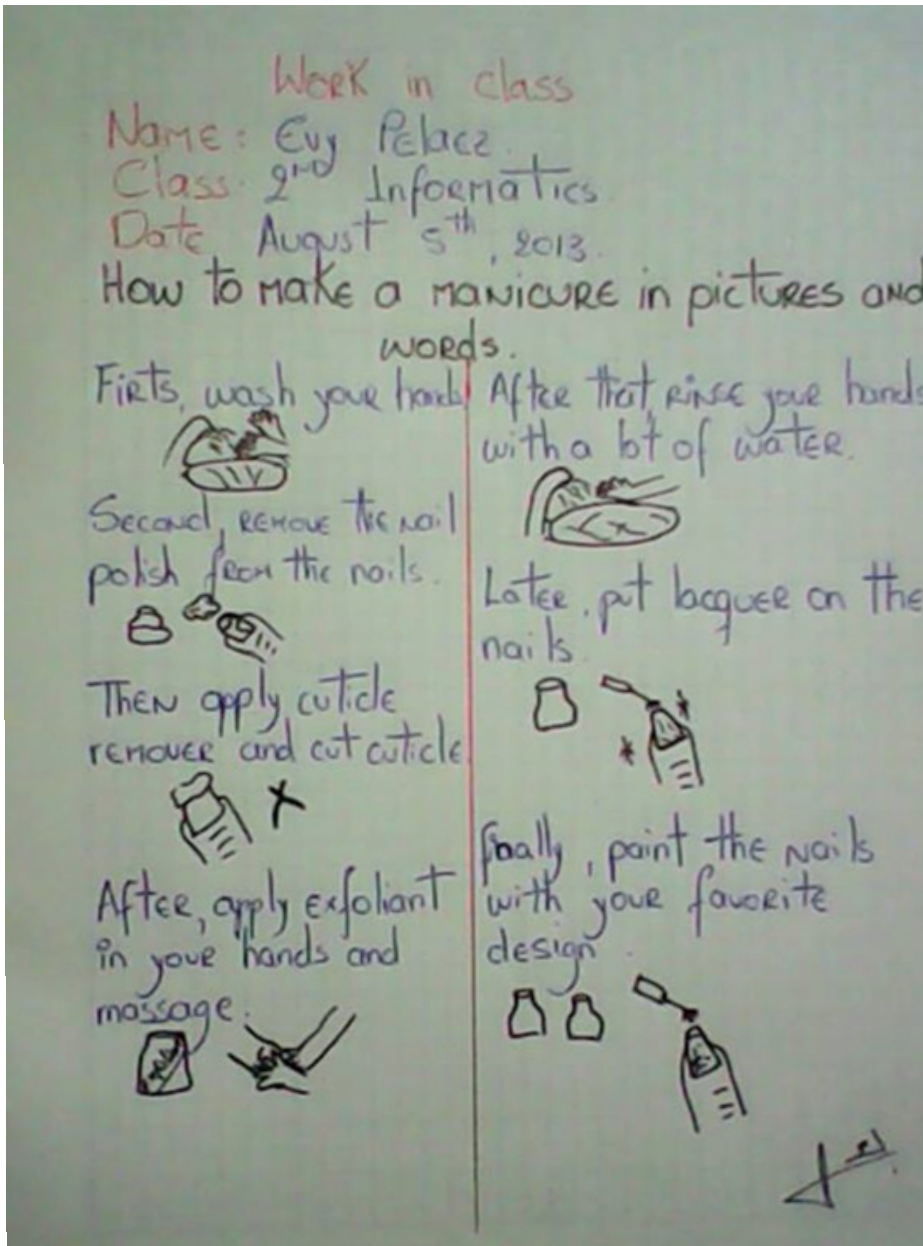 Work in class
Name: Evy Pelaez
Class 2nd Informatics
Date August 5th, 2013.
How to make a manicure in pictures and
words.
Firts, wash your hands
Second, remove the nail
polish from the nails.
Then apply cuticle
remover and cut cuticle
After, apply exfoliant
in your hands and
massage.
After that, rinse your hands
with a lot of water.
Later, put lacquer on the
nails
finally, paint the nails
with your favorite
design.